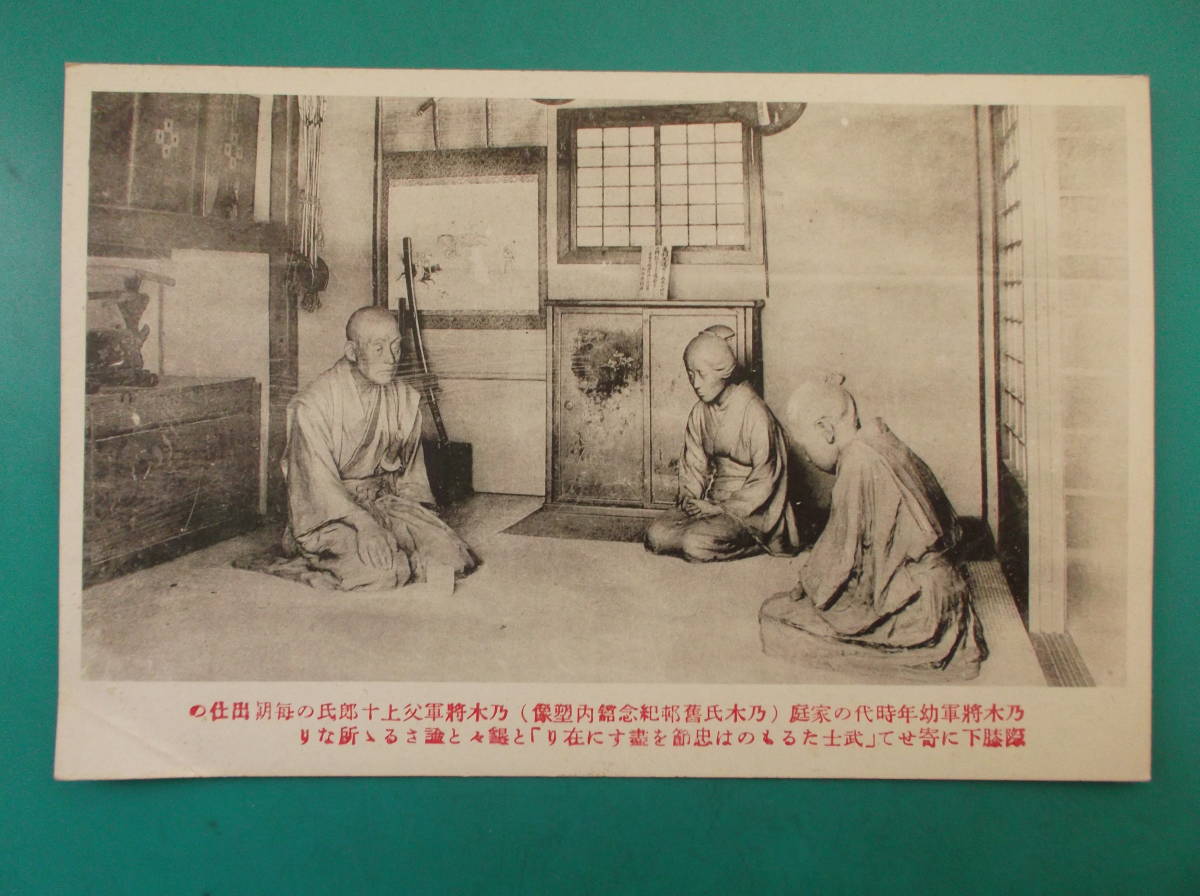 乃木將軍幼年時代の家庭(乃木氏舊邸紀念館內塑像)乃木將軍父上十郎氏の每朝出仕の
際膝下に寄せて「武士たるものは忠節を盡すに在り」と懇々と諭さるゝ所なり